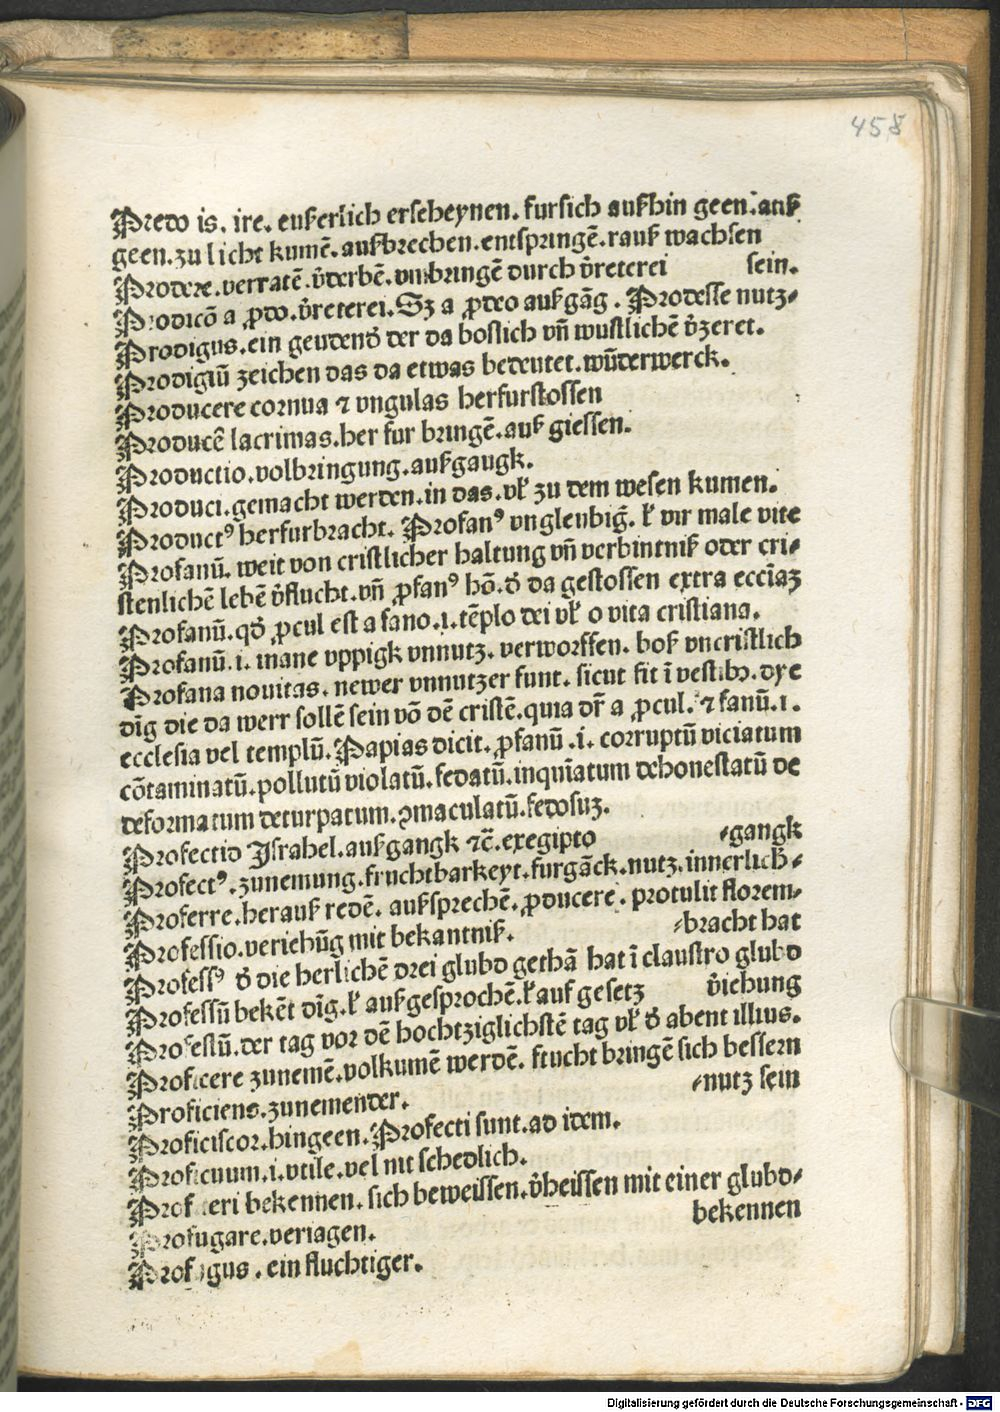 458
Predo is. ire. eußerlich erscheynen. fursich außhin geen. auß
geen. zu licht kumē. außbrechen. entspringē. rauß wachsen
Prodere. verratē. v̓derbē. vmbringē durch v̓reterei sein.
Prodicō a ꝓdo. v̓reterei. Sz a ꝓdeo außgāg. Prodesse nutz⸗
Prodigus. ein geudend̓ der da boslich vn̄ wustlichē v̓zeret.
Prodigiū zeichen das da etwas bedeutet. wūderwerck.
Producere cornua ⁊ vngulas herfurstossen
Producē lacrimas. her fur bringē. auß giessen.
Productio. volbringung. außgangk.
Produci. gemacht werden. in das. vł zu dem wesen kumen.
Productꝰ herfurbracht. Profanꝰ vngleubiḡ. ł vir male vite
Profanū. weit von cristlicher haltung vn̄ verbintniß oder cri⸗
stenlichē lebē v̓flucht. vn̄ ꝓfanꝰ hō. d̓ da gestossen extra eccīaz
Profanū. qd̓ ꝓcul est a fano. i. tēplo dei vł o vita cristiana.
Profanū. i. inane vppigk vnnutz. verworffen. boß vncristlich
Profana nouitas. newer vnnutzer funt. sicut fit ī vestibꝫ. dye
dīg die da werr sollē sein vō dē cristē. quia dr̄ a ꝓcul. ⁊ fanū. i.
ecclesia vel templū. Papias dicit. ꝓfanū .i. corruptū viciatum
cōtaminatū. pollutū violatū. fedatū. inquīatum dehonestatū de
deformatum deturpatum. ꝯmaculatū. fedosuz.
Profectio Israhel. außgangk ⁊c̄. exegipto ⸗gangk
Profectꝰ. zunemung. fruchtbarkeyt. furgāck. nutz. innerlich⸗
Proferre. herauß redē. außsprechē. ꝓducere. protulit florem⸗
Professio. veriehūg mit bekantniß. ⸗bracht hat
Professꝰ d̓ die herlichē drei glubd gethā hat ī claustro glubd
Professū bekēt dīg. ł außgesprochē. ł auf gesetz v̓iehung
Profestū. der tag vor dē hochtziglichstē tag vł d̓ abent illius.
Proficere zunemē. volkumē werdē. frucht bringē sich bessern
Proficiens. zunemender. ⸗nutz sein
Proficiscor. hingeen. Profecti sunt. ad idem.
Proficuum. i. vtile. vel nit schedlich.
Profiteri bekennen. sich beweissen. v̓heissen mit einer glubd⸗
Profugare. veriagen. bekennen
Profugus. ein fluchtiger.
Digitalisierung gefördert durch die Deutsche Forschungsgemeinschaft - DFG